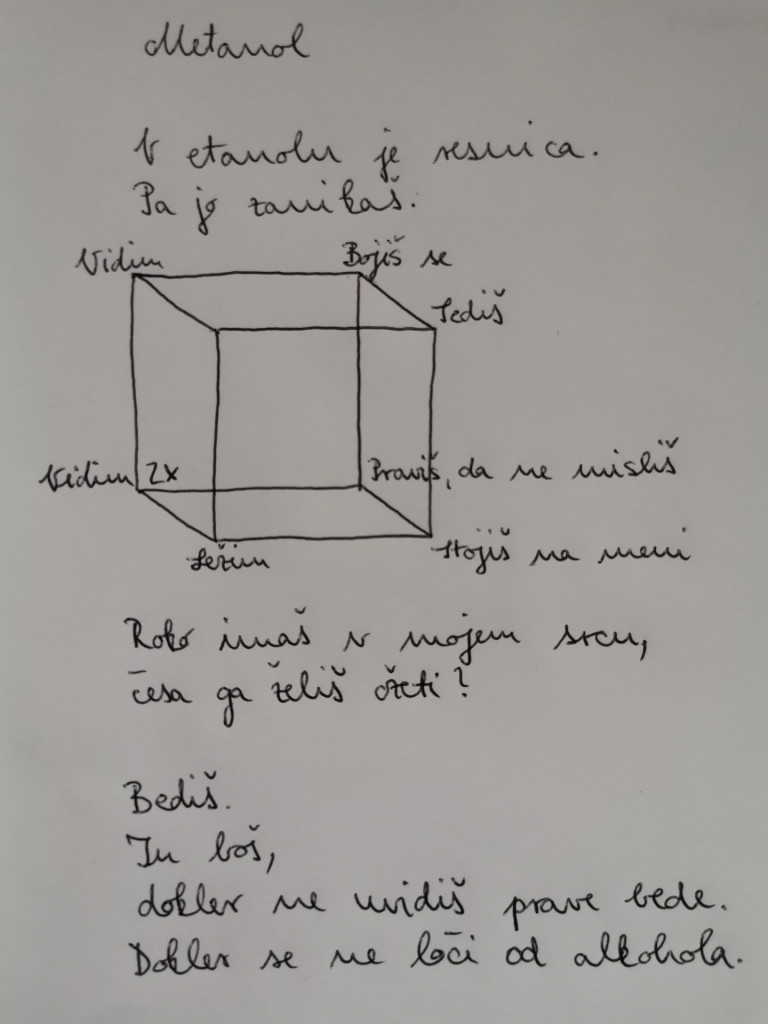 Metanol
V etanolu je resnica.
Pa jo zanikaš.
Vidim
Bojiš se
Sediš
Vidim 2x
Praviš, da ne misliš
Ležim
Stojiš na meni
Roko imaš v mojem srcu,
česa ga želiš ožeti?
Bediš.
Tu boš,
dokler ne uvidiš prave bede.
Dokler se ne loči od alkohola.